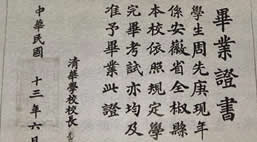 畢業證書
學生周先庚現年
係安徽省全椒縣
本校依照規定學
完畢考試亦均及
准予畢業此證
清華學校校長
中華民國十三年六月